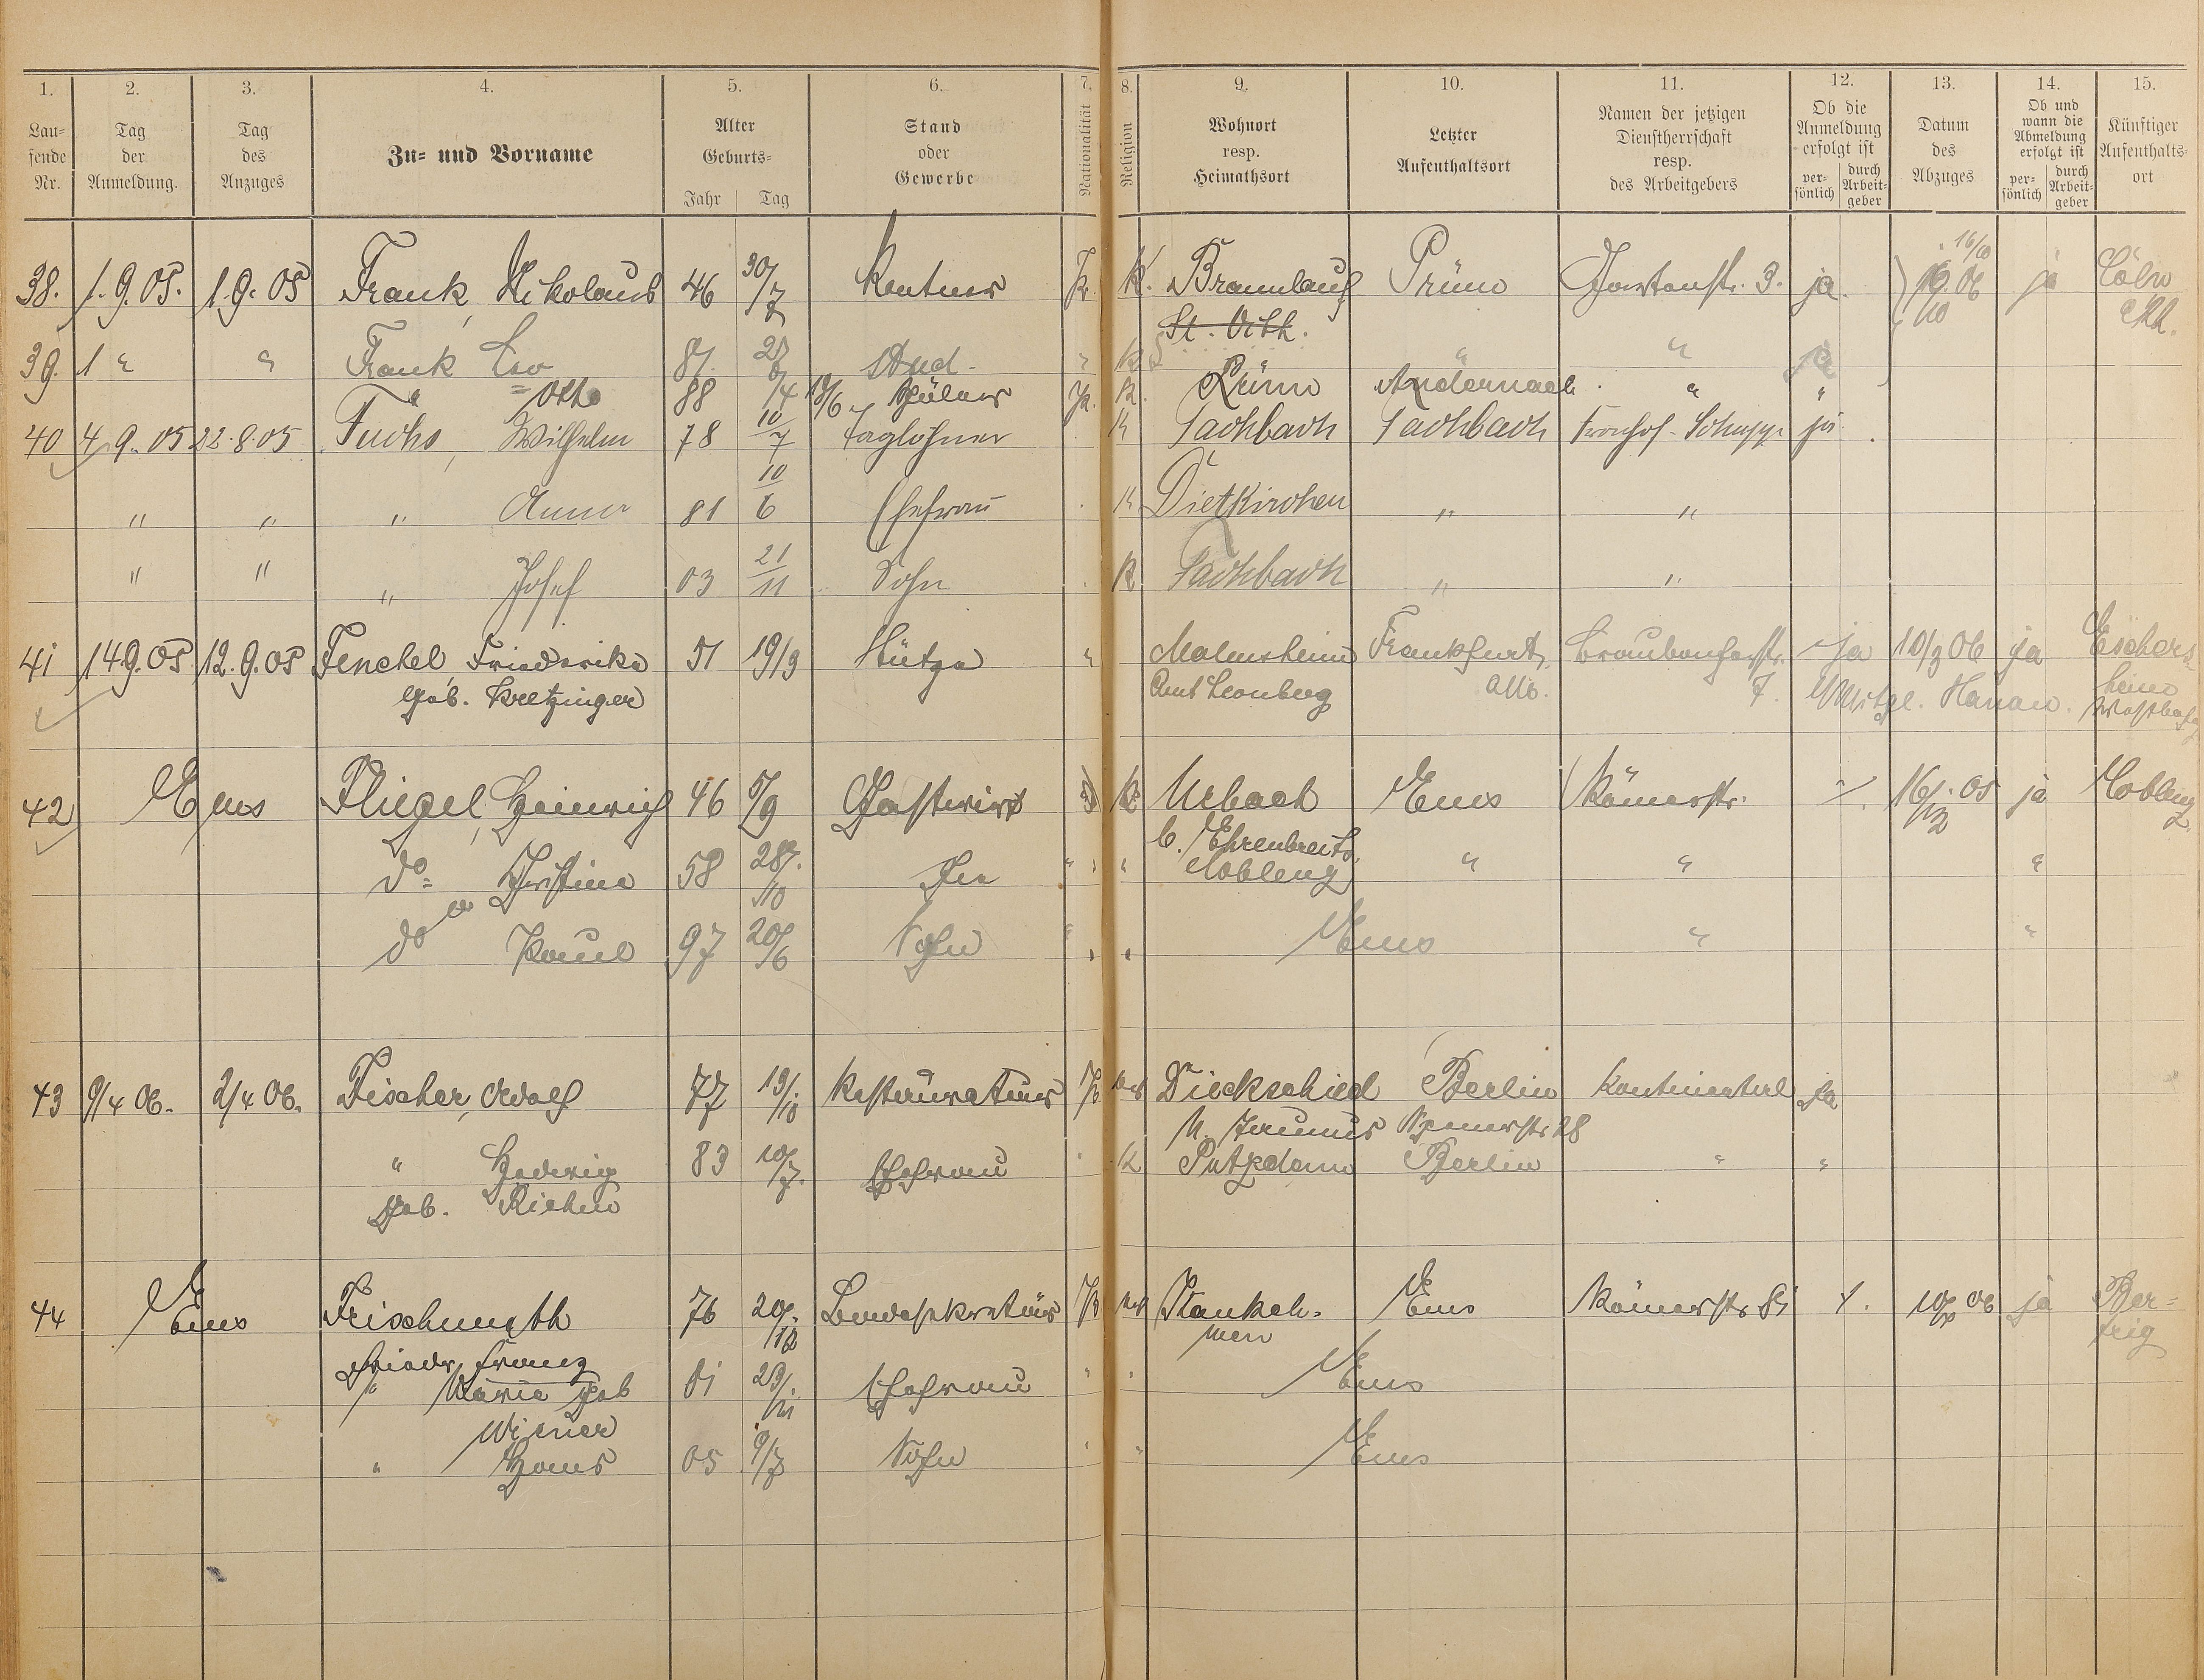 1. 2. 3. 4. 5. 6. 7. 8. 9. 10. 11. 12. 13. 14. 15.
Lau-
fende
Nr.
Tag
der
Anmeldung.
Tag
des
Anzuges
Zu- und Vorname
Alter
Geburts-
Jahr Tag
Stand
oder
Gewerbe
Nationalität
Religion
Wohnort
resp.
Heimathsort
Letzter
Aufenthaltsort
Namen der jetzigen
Dienstherrschaft
resp.
des Arbeitgebers
Ob die
Anmeldung
erfolgt ist
per-
sönlich
durch
Arbeit-
geber
Datum
des
Abzuges
Ob und
wann die
Abmeldung
erfolgt ist
per-
sönlich
durch
Arbeit-
geber
Künftiger
Aufenthalts-
ort
38. 1.9.05. 1.9.05 Frank, Nikolaus 46 30/7 Rentner Pr. K. Braunlauf Prüm 3. ja. 06 ja Cöln
St. Vith.
39. 1 " " Frank Leo 87. Stud. " K " " ja
" Otto 88 Schüler Pr. K. Prüm Andernach " "
40 4.9.05 22.8.05 Fuchs, Wilhelm 78 10/7 Taglöhner K Fachbach Fachbach Fronhof-Schupp ja.
" " " Anna 81 10/6 Ehefrau K Dietkirchen " "
" " " Josef 03 21/11 Sohn K Fachbach " "
41 14.9.05 12.9.05 Fenchel Friederike 51 19/3 Stütze " Malmsheim Frankfurt, ja 10/3 06 ja Eschers-
geb. Kretzinger Amt Leonberg a/M. 7. Hanau. heim
42 Ems Fliegel, Heinrich 46 5/9 Gastwirt K Urbach Ems Römerstr. 16/12 05 ja Coblenz
b. Ehrenbreitst.
do Christine 58 28/10 Frau " " Coblenz " " "
do Paul 97 20/6 Sohn " " Ems " "
43 9/4 06. 2/4 06. Fischer, Adolf 77 19/10 Restaurateur Pr ev Dickschied Berlin Kontinental ja
U. Taunus 28
" Hedwig 83 10/7. Ehefrau " K Berlin " "
geb. Riehm
44 Ems Frischmuth 76 20/12 Pr ev Ems Römerstr 81 06 ja
Friedr. Franz
" Marie geb 81 Ehefrau " " Ems
Wiener
" Hans 05 9/7 Sohn " " Ems